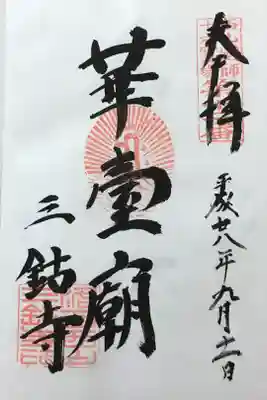 奉拝
平成廿八年九月十一日
華臺廟
三鈷寺